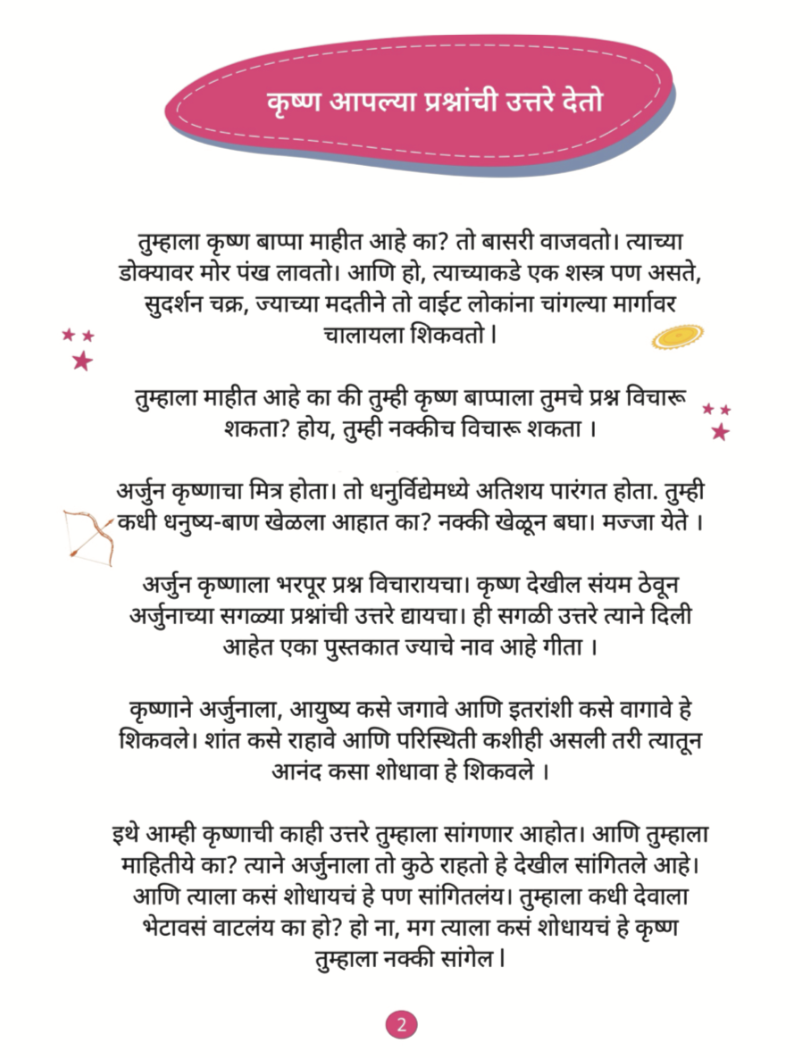 कृष्ण आपल्या प्रश्नांची उत्तरे देतो
तुम्हाला कृष्ण बाप्पा माहीत आहे का? तो बासरी वाजवतो। त्याच्या
डोक्यावर मोर पंख लावतो। आणि हो, त्याच्याकडे एक शस्त्र पण असते,
सुदर्शन चक्र, ज्याच्या मदतीने तो वाईट लोकांना चांगल्या मार्गावर
चालायला शिकवतो l
तुम्हाला माहीत आहे का की तुम्ही कृष्ण बाप्पाला तुमचे प्रश्न विचारू
शकता? होय, तुम्ही नक्कीच विचारू शकता ।
अर्जुन कृष्णाचा मित्र होता। तो धनुर्विद्येमध्ये अतिशय पारंगत होता. तुम्ही
कधी धनुष्य-बाण खेळला आहात का? नक्की खेळून बघा। मज्जा येते ।
अर्जुन कृष्णाला भरपूर प्रश्न विचारायचा। कृष्ण देखील संयम ठेवून
अर्जुनाच्या सगळ्या प्रश्नांची उत्तरे द्यायचा। ही सगळी उत्तरे त्याने दिली
आहेत एका पुस्तकात ज्याचे नाव आहे गीता ।
कृष्णाने अर्जुनाला, आयुष्य कसे जगावे आणि इतरांशी कसे वागावे हे
शिकवले। शांत कसे राहावे आणि परिस्थिती कशीही असली तरी त्यातून
आनंद कसा शोधावा हे शिकवले ।
इथे आम्ही कृष्णाची काही उत्तरे तुम्हाला सांगणार आहोत। आणि तुम्हाला
माहितीये का? त्याने अर्जुनाला तो कुठे राहतो हे देखील सांगितले आहे।
आणि त्याला कसं शोधायचं हे पण सांगितलंय। तुम्हाला कधी देवाला
भेटावसं वाटलंय का हो? हो ना, मग त्याला कसं शोधायचं हे कृष्ण
तुम्हाला नक्की सांगेल l
2